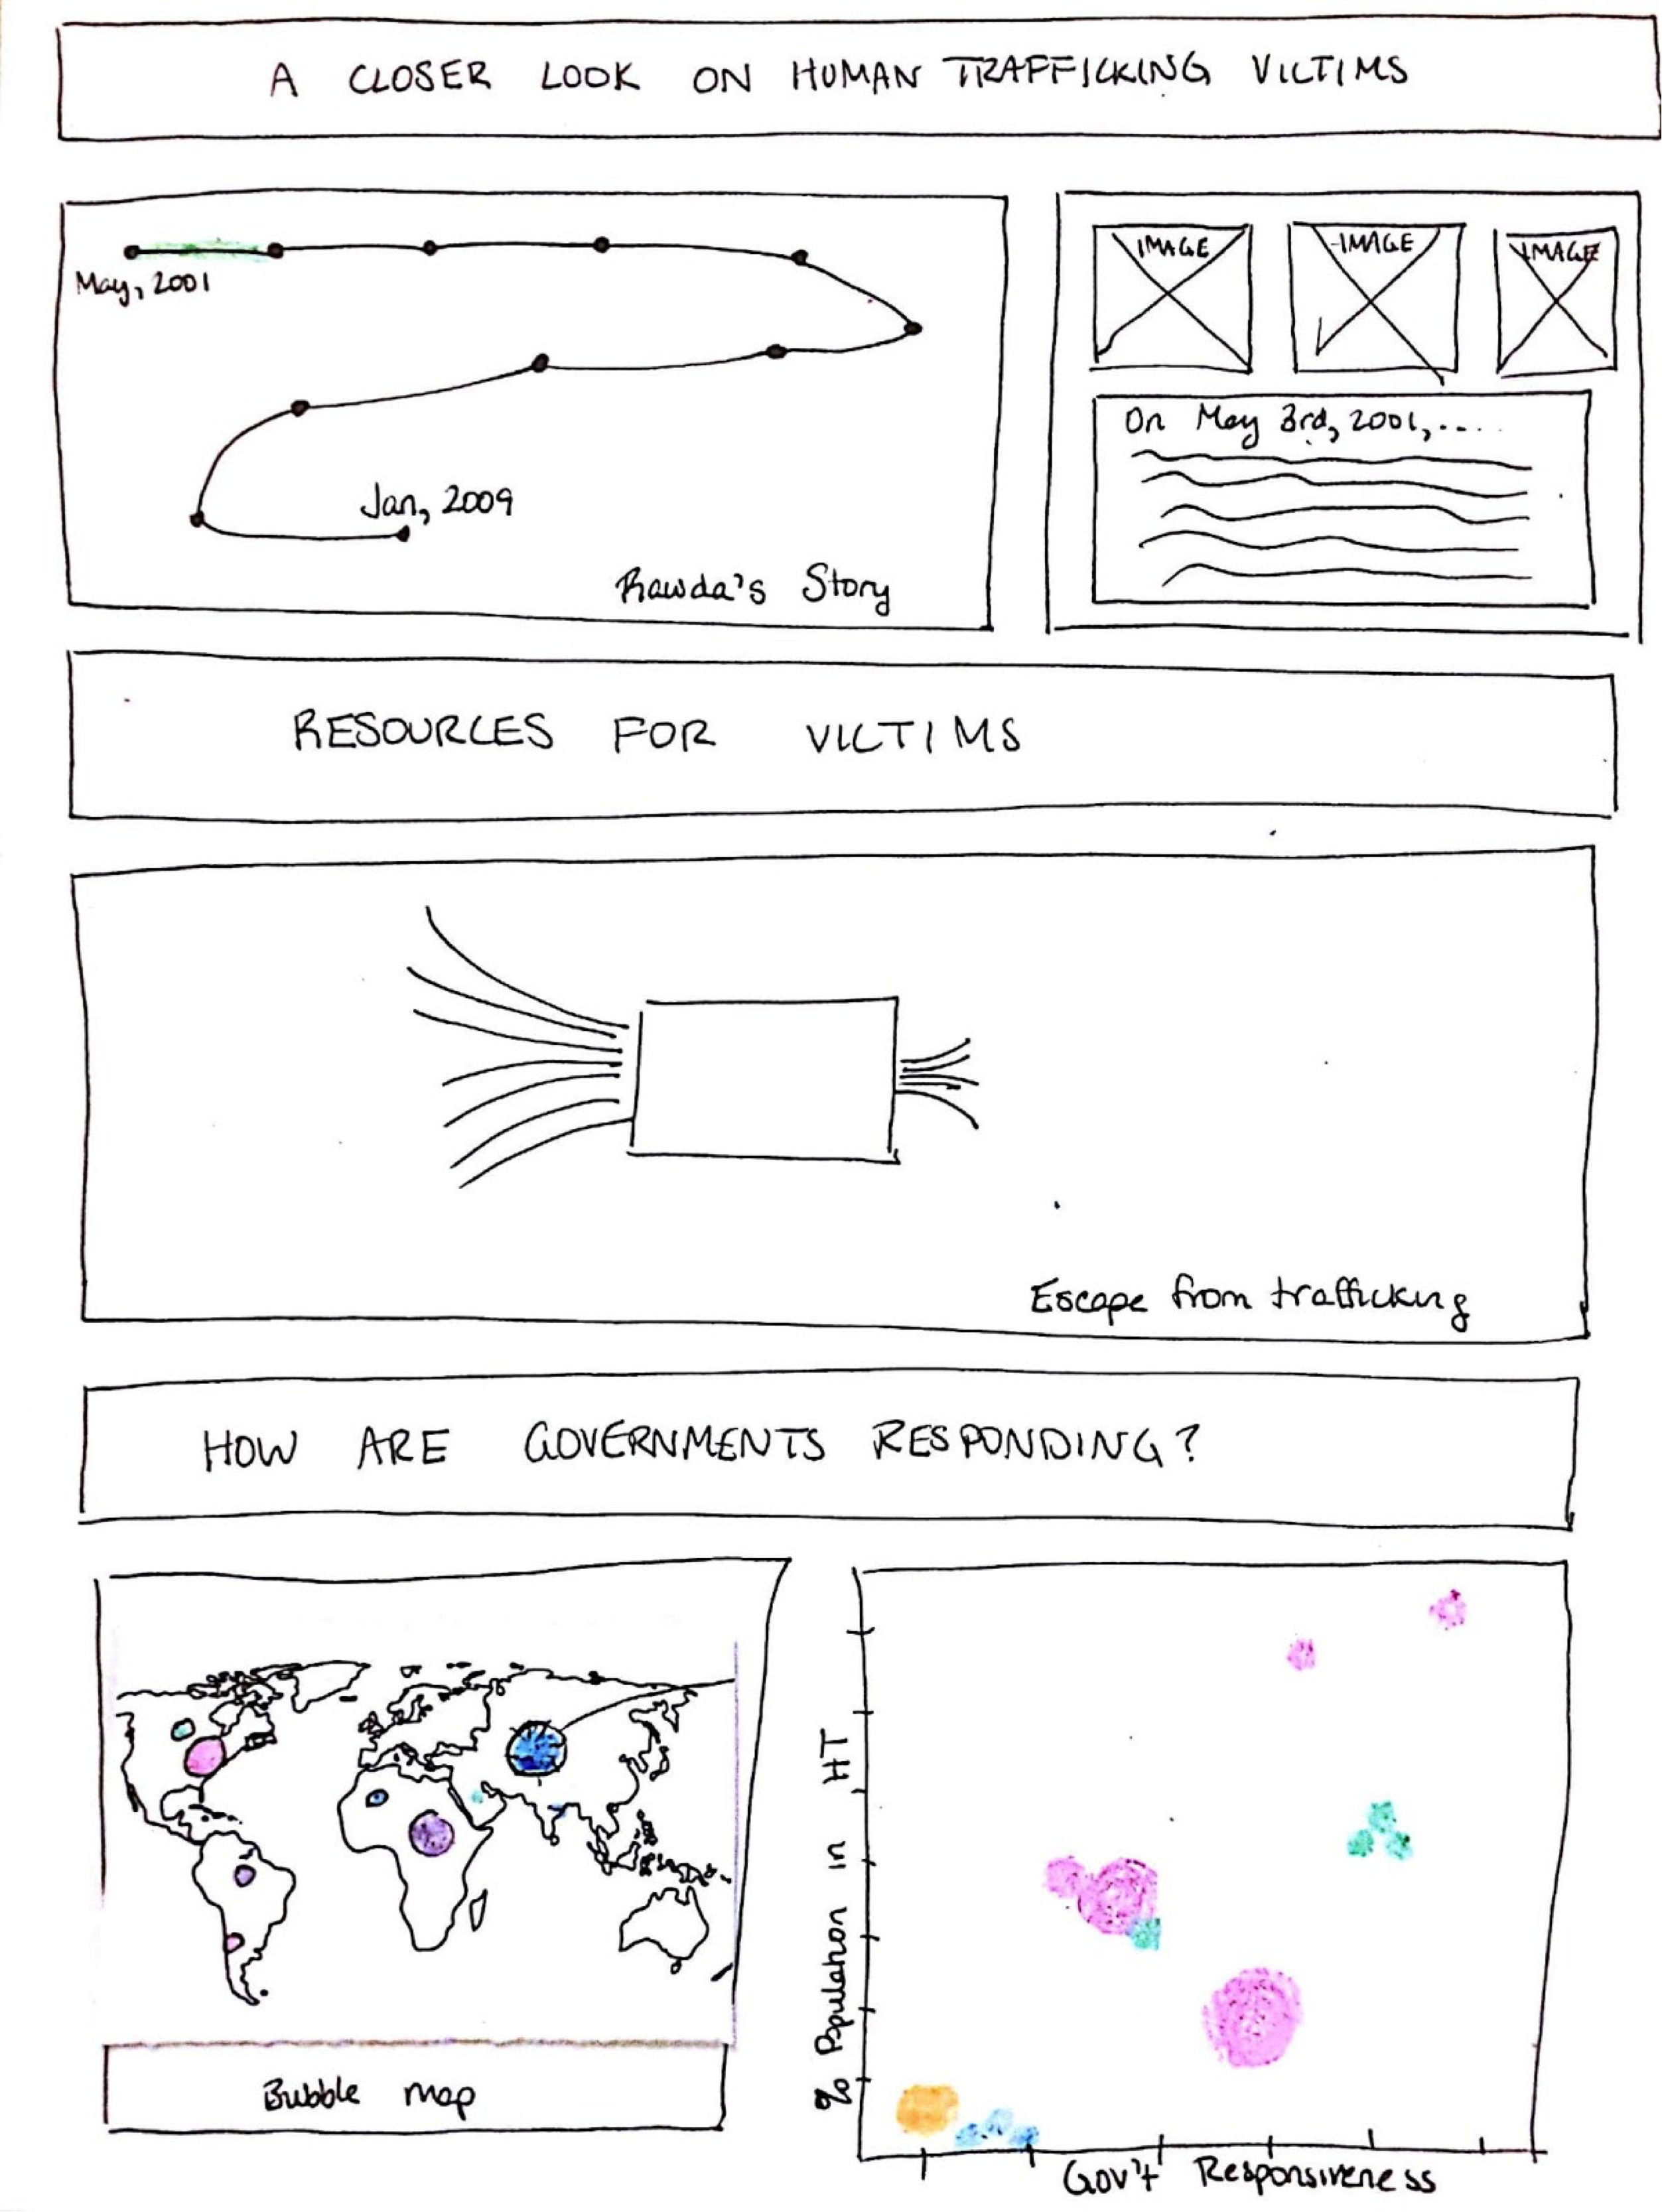 A CLOSER LOOK ON HUMAN TRAFFICKING VICTIMS
May, 2001
Jan, 2009
Rawda's Story
IMAGE
IMAGE
IMAGE
On May 3rd, 2001,....
RESOURCES FOR VICTIMS
Escape from trafficking
HOW ARE GOVERNMENTS RESPONDING?
Bubble map
% Population in HT
Gov't Responsiveness